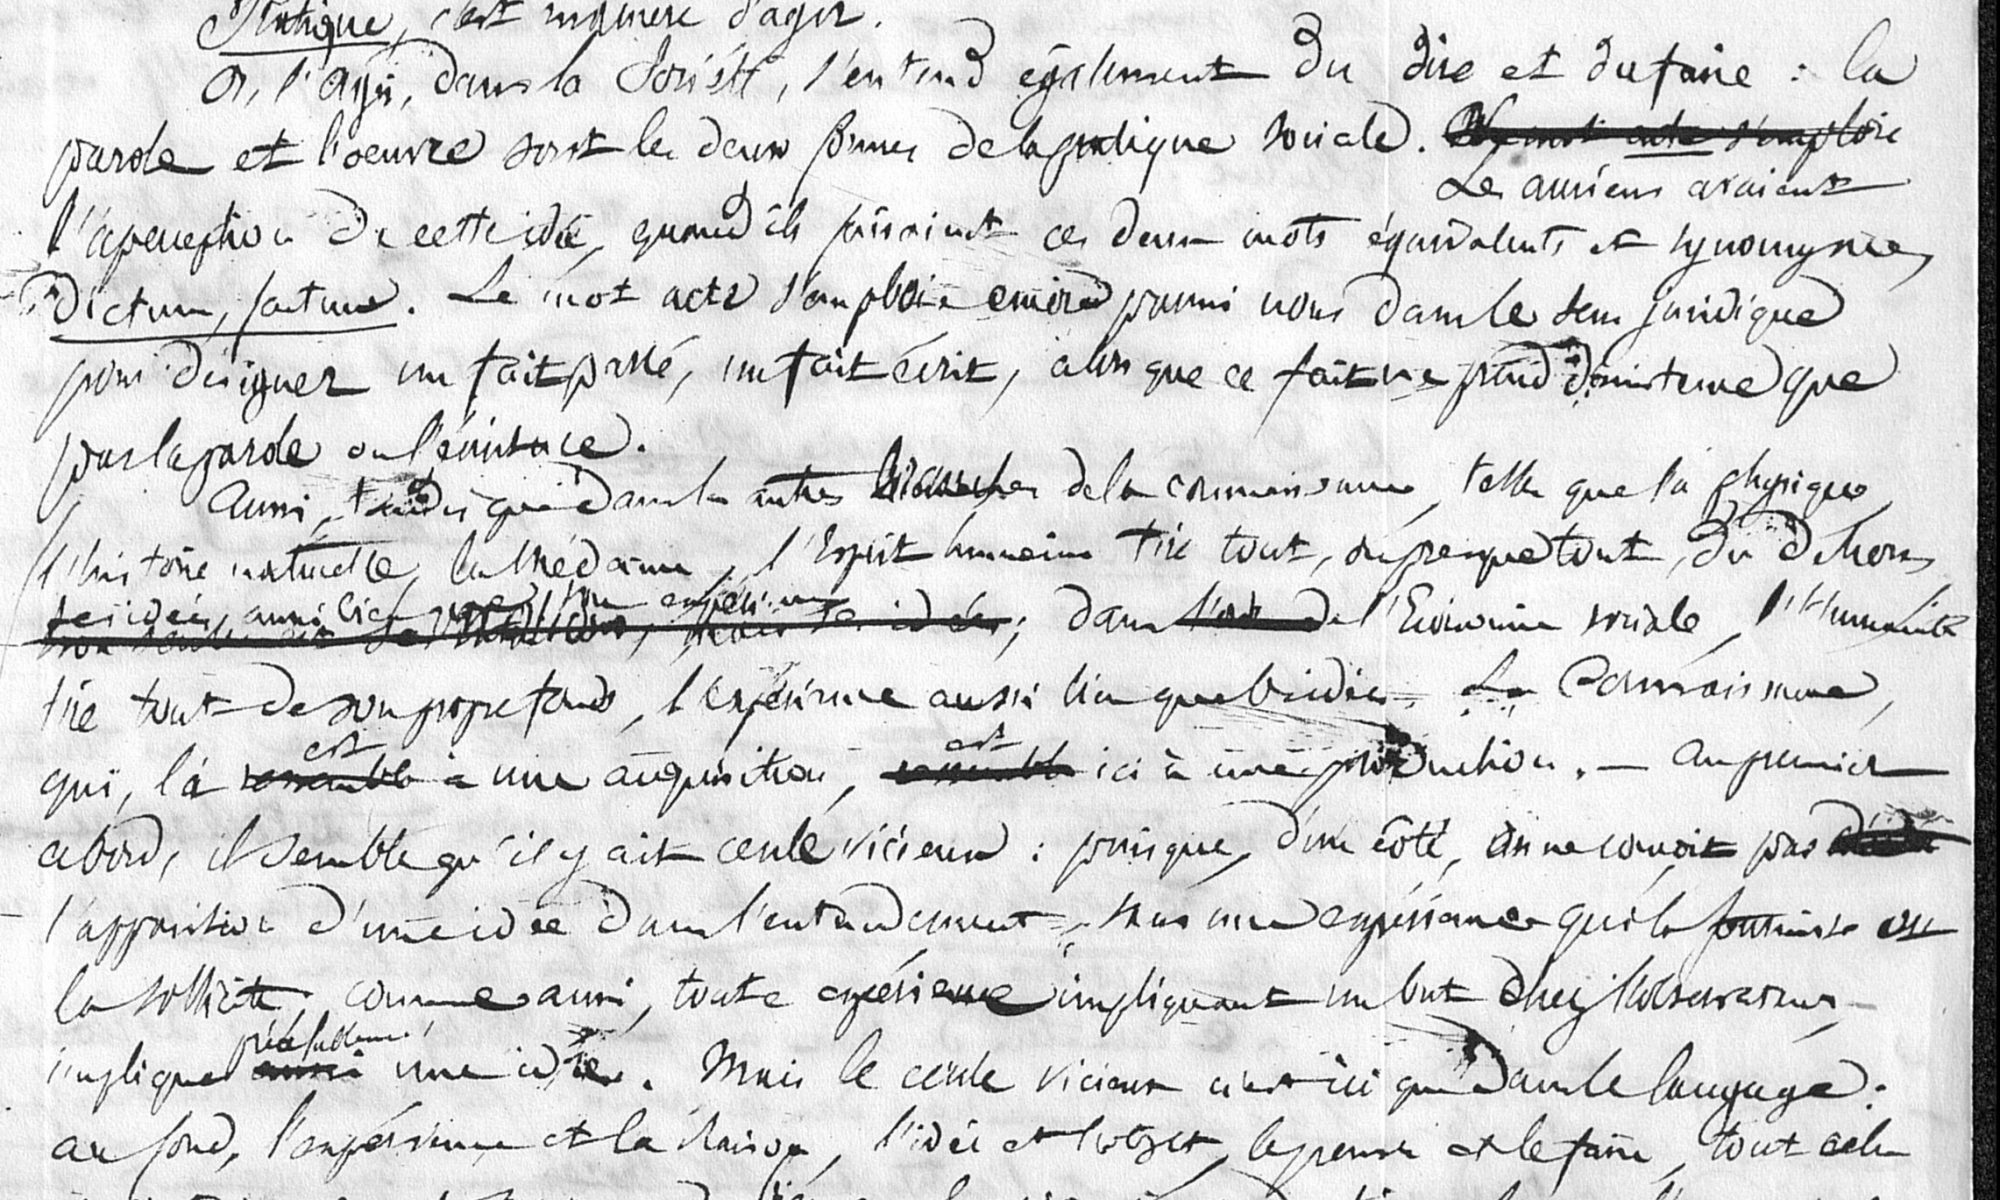 Pratique, c'est manière d'agir.
Or, l'agir, dans la Société, s'entend également du dire et du faire : la
parole et l'oeuvre sont les deux formes de la pratique sociale. Le mot acte s'emploie
Les anciens avaient
l'aperception de cette idée, quand ils faisaient ces deux mots équivalents et synonymes,
Dictum, factum. Le mot acte s'emploie encore parmi nous dans le sens juridique
pour désigner un fait passé, un fait écrit, alors que ce fait ne prend d'existence que
par la parole ou l'écriture.
Aussi, tandis que dans les autres branches de la connaissance, telles que la physique,
l'histoire naturelle, la médecine, l'Esprit humain tire tout, ou presque tout, du dehors,
ses idées, aussi bien que son expérience
mais ses idées; dans l'Economie sociale, l'Humanité
tire tout de son propre fonds, l'expérience aussi bien que les idées. La Connaissance,
est est
qui, là ressemble à une acquisition, ressemble ici à une production. — au premier
abord, il semble qu'il y ait cercle vicieux : puisque, d'un côté, on ne conçoit pas
l'apparition d'une idée dans l'entendement, sans une expérience qui la fournisse ou
la sollicite, comme aussi, toute expérience impliquant un but chez l'observateur,
préalablement
implique aussi une idée. Mais le cercle vicieux n'est ici que dans le langage :
au fond, l'expérience et la Raison, l'idée et l'objet, le penser et le faire, tout cela